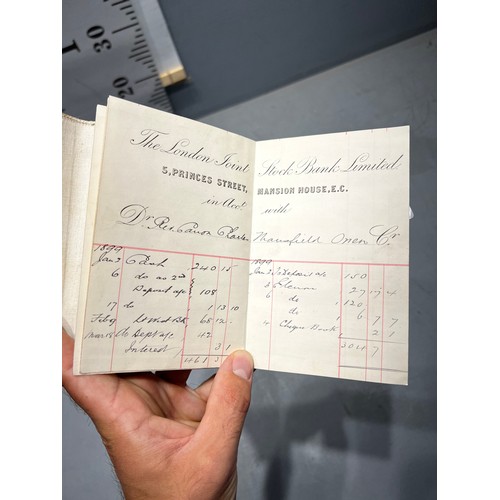 The London Joint Stock Bank Limited
5, PRINCES STREET, MANSION HOUSE, E.C.
in Acct. with
Dr Rev. Canon Charles Mansfield Owen Cr
1899
Jany 2 Cash 240 15 -
6 do as 2nd
Deposit a/c 108
17 do 1 13 10
Feby 68 12 -
Mar 18 Dept a/c 42
Interest 3 1
461 3
1899
150
3 27 17 4
6 do 120
do 6 7 7
4 Cheque Book 2 1
304 7